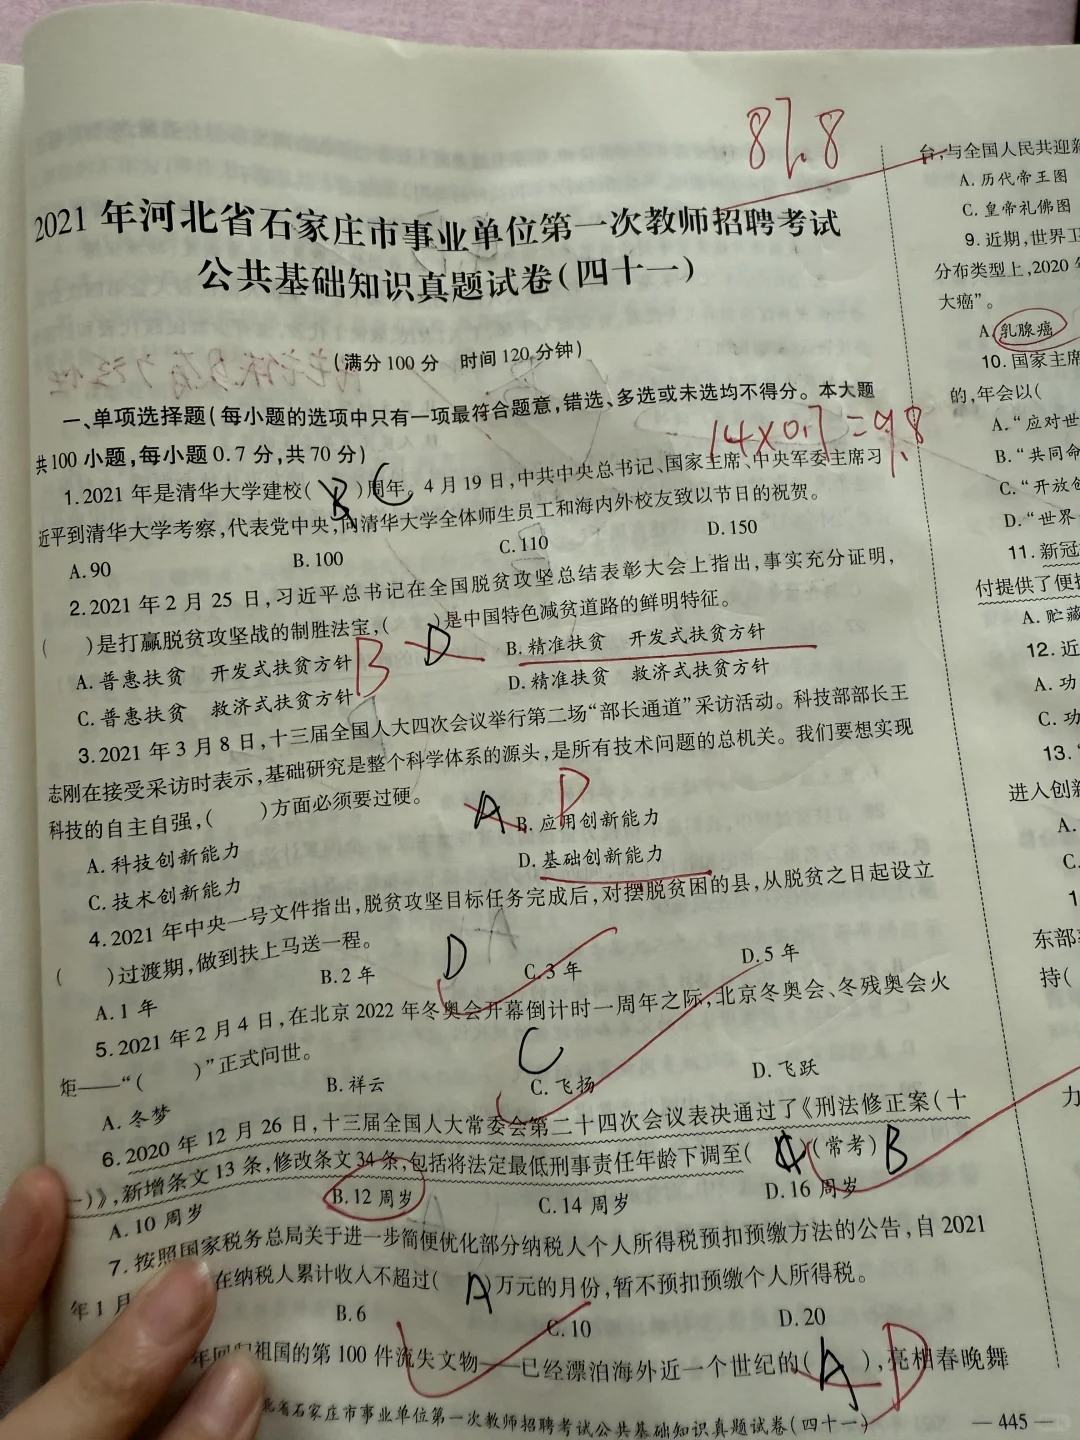 81.8
2021年河北省石家庄市事业单位第一次教师招聘考试
公共基础知识真题试卷(四十一)
(满分100分 时间120分钟)
一、单项选择题(每小题的选项中只有一项最符合题意,错选、多选或未选均不得分。本大题
共100小题,每小题0.7分,共70分)
14×0.7=9.8
1.2021年是清华大学建校( B )周年。4月19日,中共中央总书记、国家主席、中央军委主席习
C
近平到清华大学考察,代表党中央,向清华大学全体师生员工和海内外校友致以节日的祝贺。
A.90 B.100 C.110 D.150
2.2021年2月25日,习近平总书记在全国脱贫攻坚总结表彰大会上指出,事实充分证明,
( )是打赢脱贫攻坚战的制胜法宝,( )是中国特色减贫道路的鲜明特征。
D
B
A.普惠扶贫 开发式扶贫方针 B.精准扶贫 开发式扶贫方针
C.普惠扶贫 救济式扶贫方针 D.精准扶贫 救济式扶贫方针
3.2021年3月8日,十三届全国人大四次会议举行第二场“部长通道”采访活动。科技部部长王
志刚在接受采访时表示,基础研究是整个科学体系的源头,是所有技术问题的总机关。我们要想实现
科技的自主自强,( )方面必须要过硬。
A D
A.科技创新能力 B.应用创新能力
C.技术创新能力 D.基础创新能力
4.2021年中央一号文件指出,脱贫攻坚目标任务完成后,对摆脱贫困的县,从脱贫之日起设立
( )过渡期,做到扶上马送一程。
D
A.1年 B.2年 C.3年 D.5年
5.2021年2月4日,在北京2022年冬奥会开幕倒计时一周年之际,北京冬奥会、冬残奥会火
炬——“( )”正式问世。
C
A.冬梦 B.祥云 C.飞扬 D.飞跃
6.2020年12月26日,十三届全国人大常委会第二十四次会议表决通过了《刑法修正案(十
一)》,新增条文13条,修改条文34条,包括将法定最低刑事责任年龄下调至( )(常考) B
A.10周岁 B.12周岁 C.14周岁 D.16周岁
7.按照国家税务总局关于进一步简便优化部分纳税人个人所得税预扣预缴方法的公告,自2021
年1月 在纳税人累计收入不超过( A )万元的月份,暂不预扣预缴个人所得税。
B.6 C.10 D.20
年回归祖国的第100件流失文物——已经漂泊海外近一个世纪的( A ),亮相春晚舞
D
北省石家庄市事业单位第一次教师招聘考试公共基础知识真题试卷(四十一)
— 445 —
台,与全国人民共迎新
A.历代帝王图
C.皇帝礼佛图
9.近期,世界卫
分布类型上,2020年
大癌”。
A.乳腺癌
10.国家主席
的,年会以(
A.“应对世
B.“共同命
C.“开放创
D.“世界
11.新冠
付提供了便捷
A.贮藏
12.近
A.功
C.功
13.“
进入创新
A.
C.
1
东部
持(
力